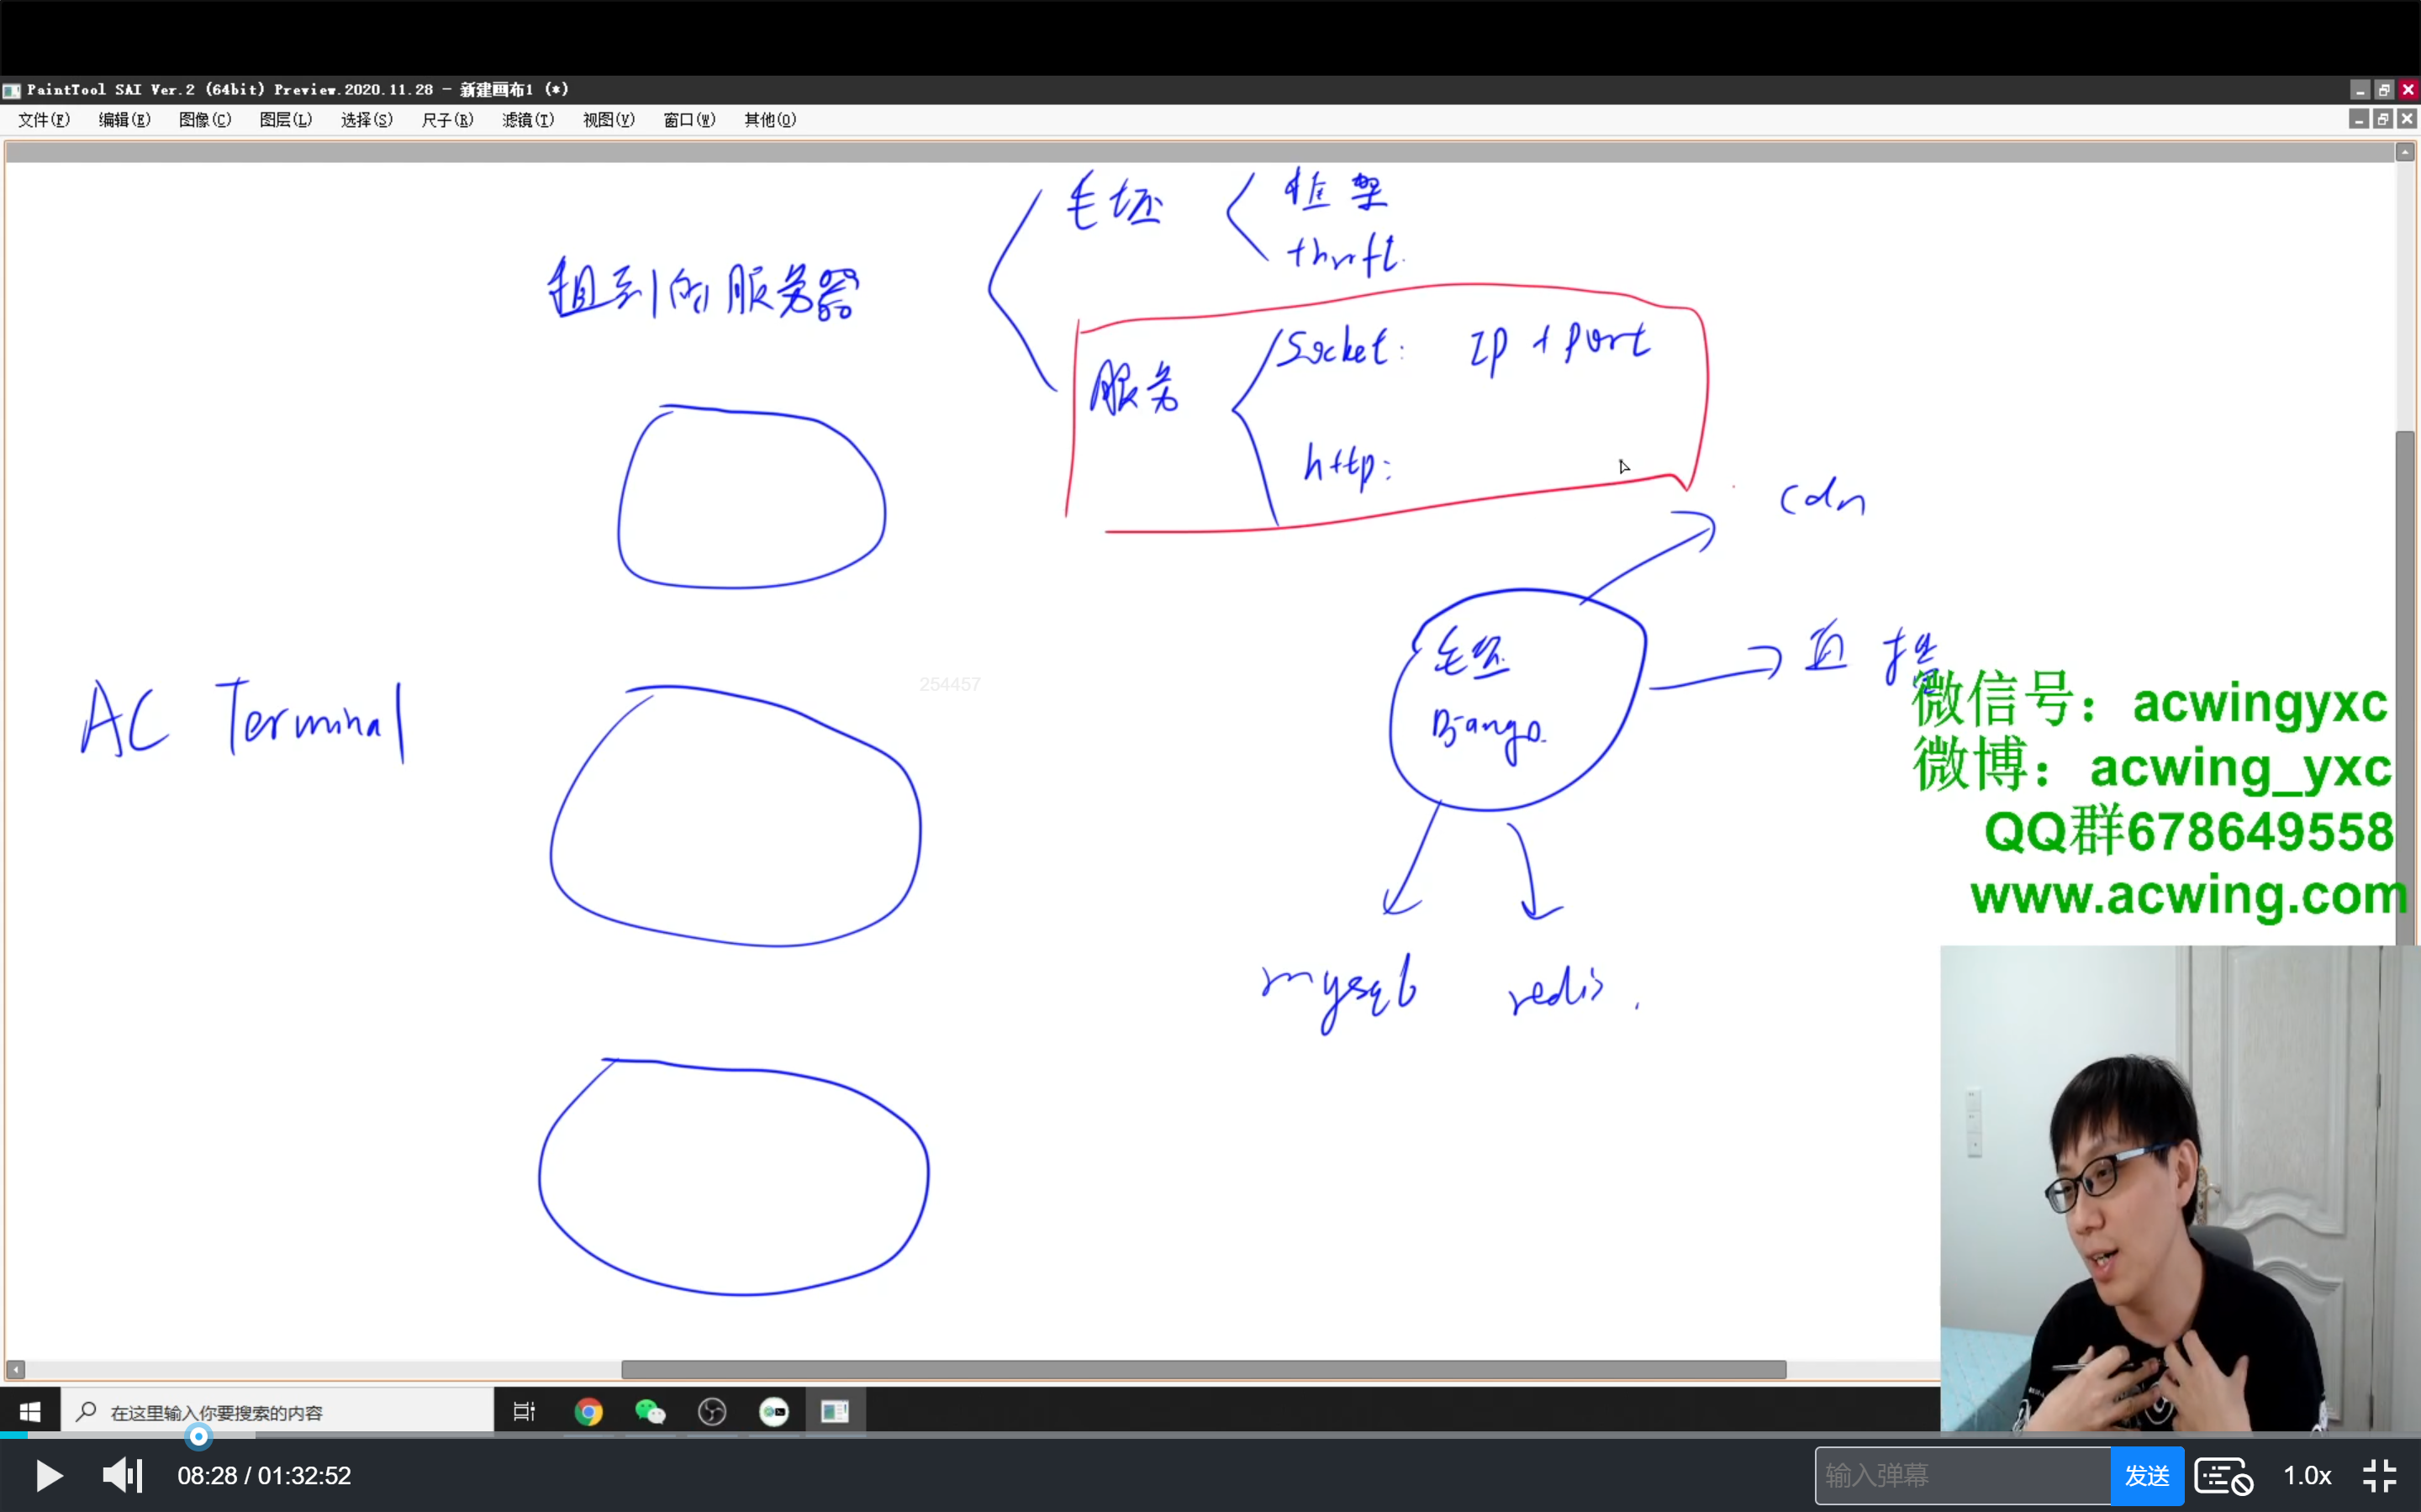 PaintTool SAI Ver.2 (64bit) Preview.2020.11.28 - 新建画布1 (*)
文件(F) 编辑(E) 图像(C) 图层(L) 选择(S) 尺子(R) 滤镜(T) 视图(V) 窗口(W) 其他(O)
毛坯
框架
thrift.
租到的服务器
服务
Socket: IP + Port
http:
cdn
毛坯
Django.
直接
AC Terminal
254457
mysql
redis.
微信号：acwingyxc
微博：acwing_yxc
QQ群678649558
www.acwing.com
在这里输入你要搜索的内容
08:28 / 01:32:52
输入弹幕
发送
1.0x